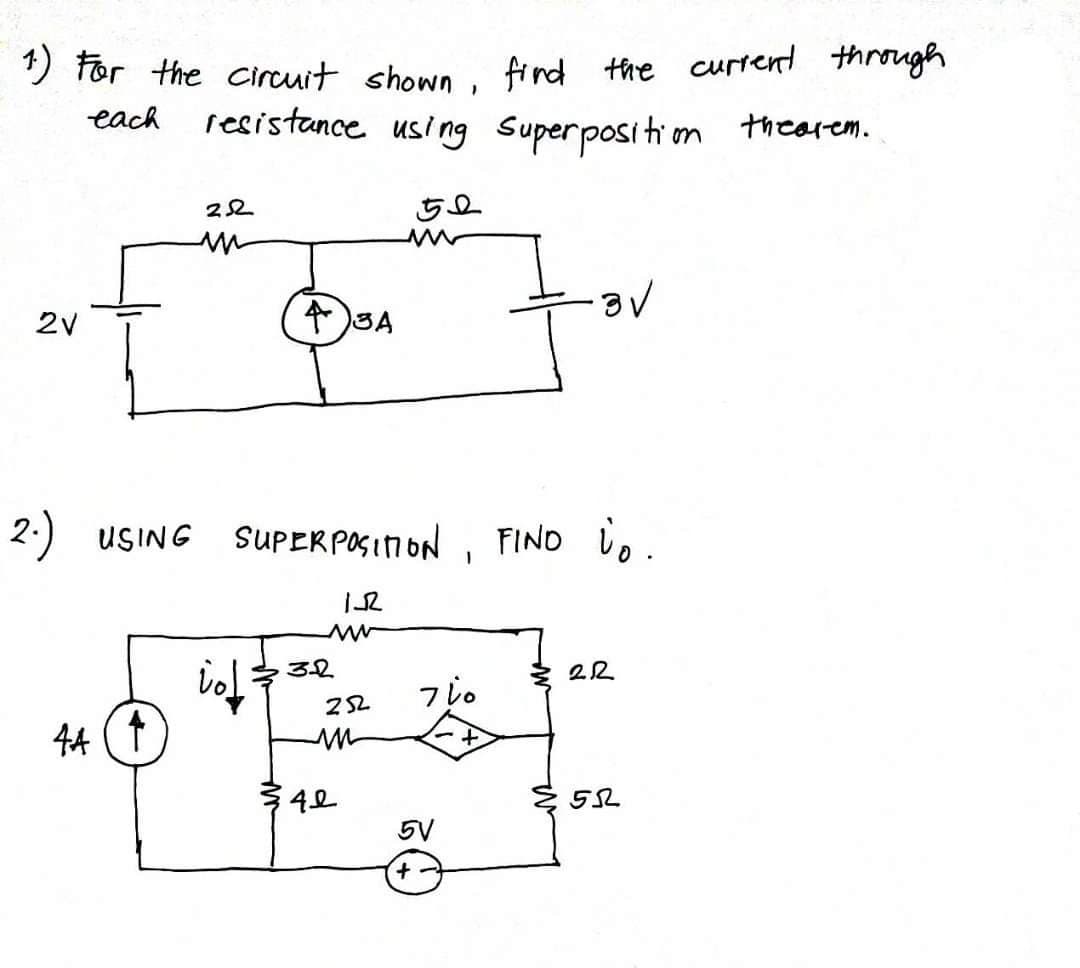 1) For the circuit shown, find the current through
each resistance using Superposition theorem.
2Ω
5Ω
2V
3A
3V
2.) USING SUPERPOSITION, FIND io.
1Ω
io
3Ω
2Ω
2Ω
7io
4A
- +
4Ω
5Ω
5V
+ -